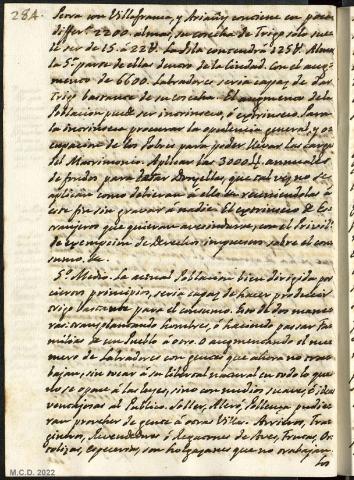 284.
Serra con Villafranca, y Ariañy conviene en poca
differ.ª 2200. almas, su cosecha de Trigo solo sue
le ser de 15. á 22 8. la Isla contendrá 125 8. Almas
la 5.ª parte de ellas dentro de la Ciudad. Con el aug-
mento de 6600. Labradores seria capaz de dar
trigo bastante de su cosecha. El augmento de la
Poblacion puede ser intrinseco, ó extrinseco. Para
lo intrinseco procurar la opulencia general, y o-
cupacion de los Pobres para poder llevar las cargas
del Matrimonio. Aplicar las 3000 annuales
de fundos para dotar Donzellas, que tal vez no se
aplican como debieran á ello reuniendolas á
este fin sin gravar á nadie. El extrinseco de Es-
trangeros que quieran avecindarse, con el Privile-
de exempcion de Derechos impuestos sobre el con-
sumo &c.
5.º Medio. La actual Poblacion bien dirigida por
ciertos principios, seria capaz de hacer producir
trigo bastante para el consumo. Son de dos mane-
ras: transplantando hombres, ó haciendo passar fa-
milias de un Pueblo á otro. O augmentando el nu-
mero de Labradores con gentes que ahora no tra-
bajan, sin tocar á su libertad natural en todo lo que
no se opone á las leyes, sino con medios suaves, é
ventajosos al Publico. Soller, Alaró, Pollenza pudie-
ran proveher de gente á otras Villas. Arrieros, Tra-
ginheros, Revendedores ó Regatones de Aves, frutas, Or-
talizas, especerias, son holgazanes que no trabajan
los
M.C.D. 2022